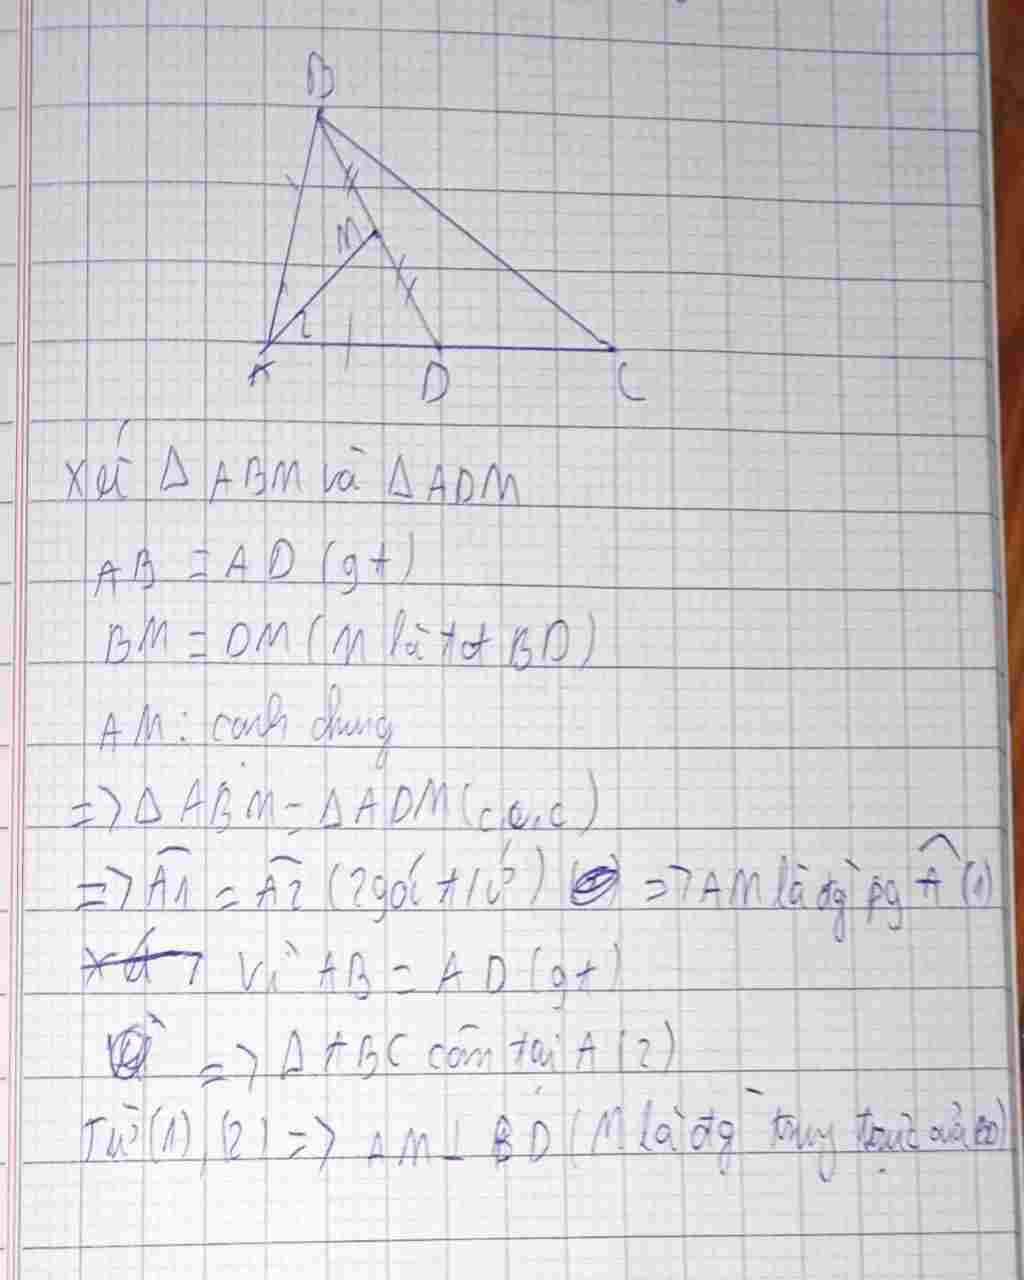 B
M
2
A
D
C
Xét Δ ABM và Δ ADM
AB = AD (gt)
BM = DM (M là tđ BD)
AM: cạnh chung
=> Δ ABM = Δ ADM (c.c.c)
=> A1 = A2 (2 góc t/ứ) => AM là đg pg A (1)
Vì AB = AD (gt)
=> Δ ABC cân tại A (2)
Từ (1) (2) => AM ⊥ BD (M là đg trung trực của BD)